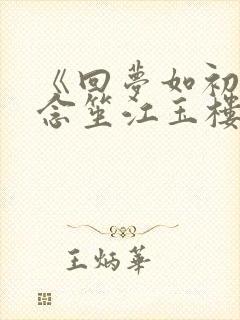 《回夢如初
念笙江玉樓
王炳華